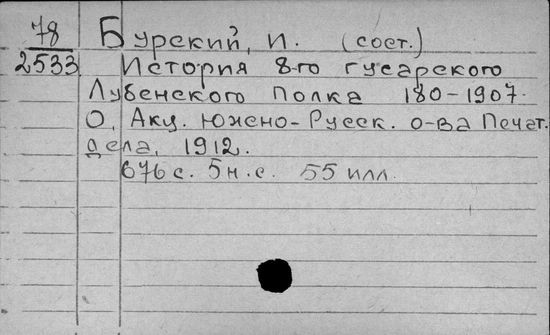 78
2533
Бурский, И. (сост.)
История 8-го гусарского
Лубенского Полка 180-1907.
О, Акц. Южно-Русск. о-ва Печат.
дела, 1912.
676 с. 5 н.с. 55 илл.